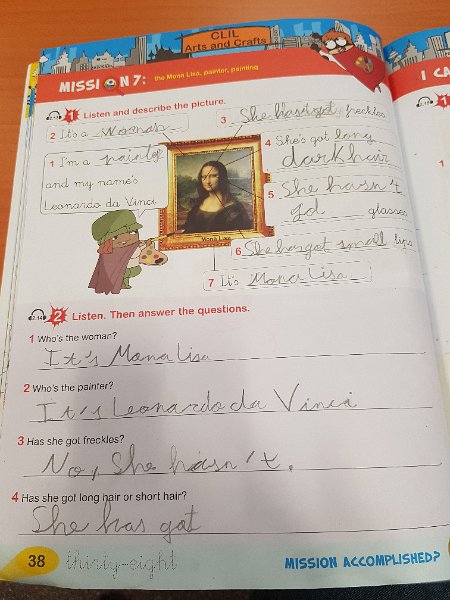 CLIL
Arts and Crafts
MISSION 7: the Mona Lisa, painter, painting
I CA
2.13 1 Listen and describe the picture.
2 It's a woman
3 She freckles
1 I'm a painter
and my name's
Leonardo da Vinci
4 She's got long
dark hair
5 She hasn't
gd glasses
6 She has got small lips
Mona Lisa
7 It's Mona Lisa
2.14 2 Listen. Then answer the questions.
1 Who's the woman?
It's Mona lisa
2 Who's the painter?
It's Leonardo da Vinci
3 Has she got freckles?
No, She hasn't.
4 Has she got long hair or short hair?
She has got
38 thirty-eight
MISSION ACCOMPLISHED?
1
1